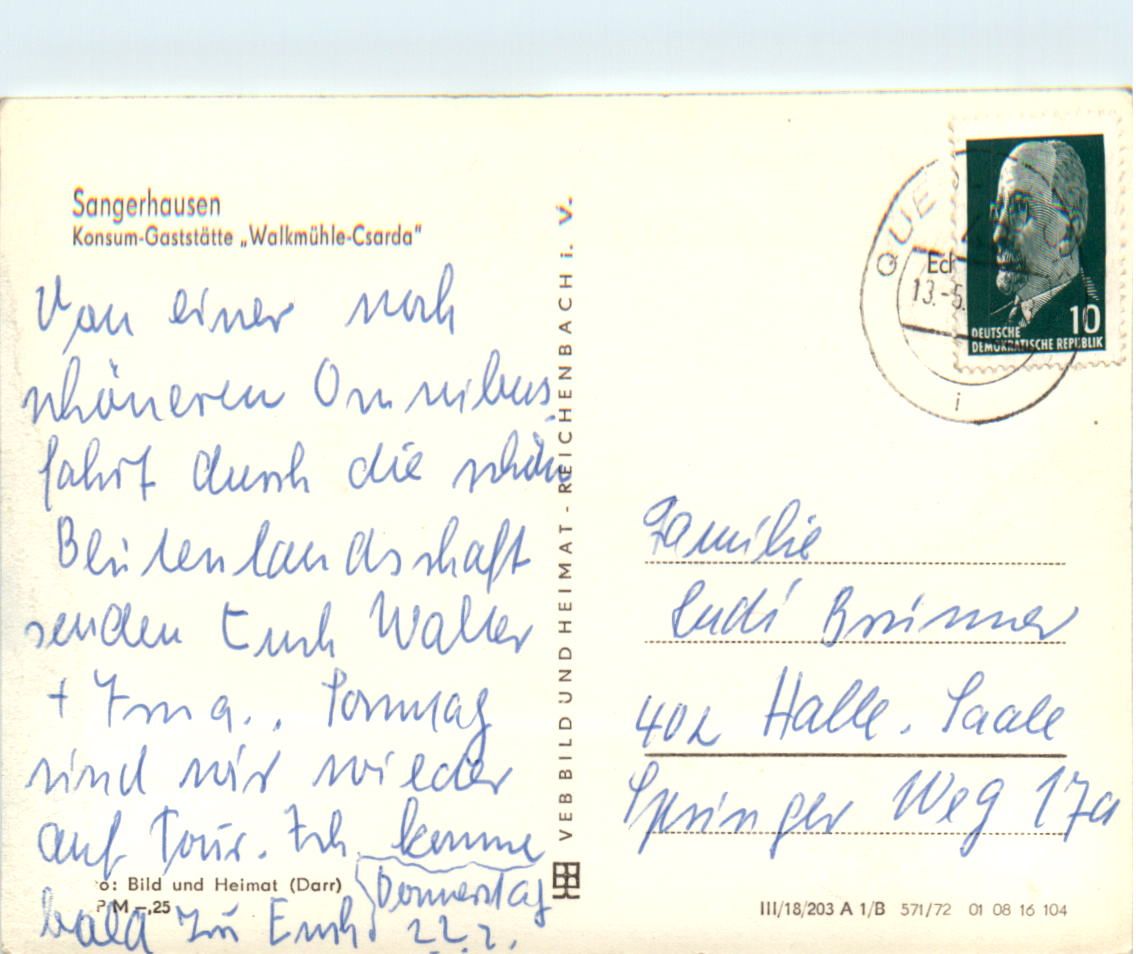 Sangerhausen
Konsum-Gaststätte „Walkmühle-Csarda"
Von einer noch
schöneren Omnibus
fahrt durch die schöne
Blütenlandschaft
senden Euch Walter
+ Irma.. Sonntag
sind wir wieder
auf Tour. Ich komme
bald zu Euch
Donnerstag
22.2.
o: Bild und Heimat (Darr)
P M -,25
VEB BILD UND HEIMAT - REICHENBACH i. V.
QUE
Ech
13.-5.
i
DEUTSCHE
DEMOKRATISCHE REPUBLIK
10
Familie
Rudi Brünner
402 Halle. Saale
Springer Weg 17a
III/18/203 A 1/B 571/72 01 08 16 104